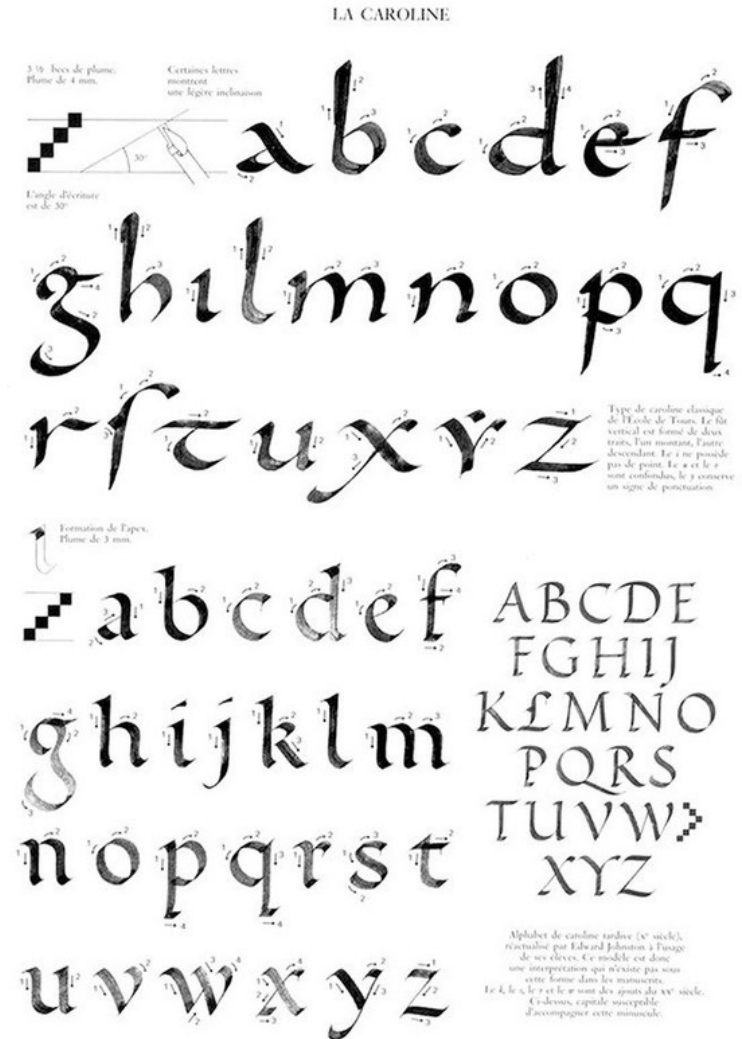 LA CAROLINE
3 ½ becs de plume.
Plume de 4 mm.
Certaines lettres
montrent
une légère inclinaison
30°
L'angle d'écriture
est de 30°
a b c d e f
g h i l m n o p q
r ſ t u x y z
Type de caroline classique
de l'École de Tours. Le fût
vertical est formé de deux
traits, l'un montant, l'autre
descendant. Le i ne possède
pas de point. Le u et le v
sont confondus, le y conserve
un signe de ponctuation
Formation de l'apex.
Plume de 3 mm.
a b c d e f
g h i j k l m
n o p q r s t
u v w x y z
ABCDE
FGHIJ
KLMNO
PQRS
TUVW
XYZ
Alphabet de caroline tardive (Xe siècle),
réactualisé par Edward Johnston à l'usage
de ses élèves. Ce modèle est donc
une interprétation qui n'existe pas sous
cette forme dans les manuscrits.
Le k, le s, le v et le w sont des ajouts du XXe siècle.
Ci-dessus, capitale susceptible
d'accompagner cette minuscule.